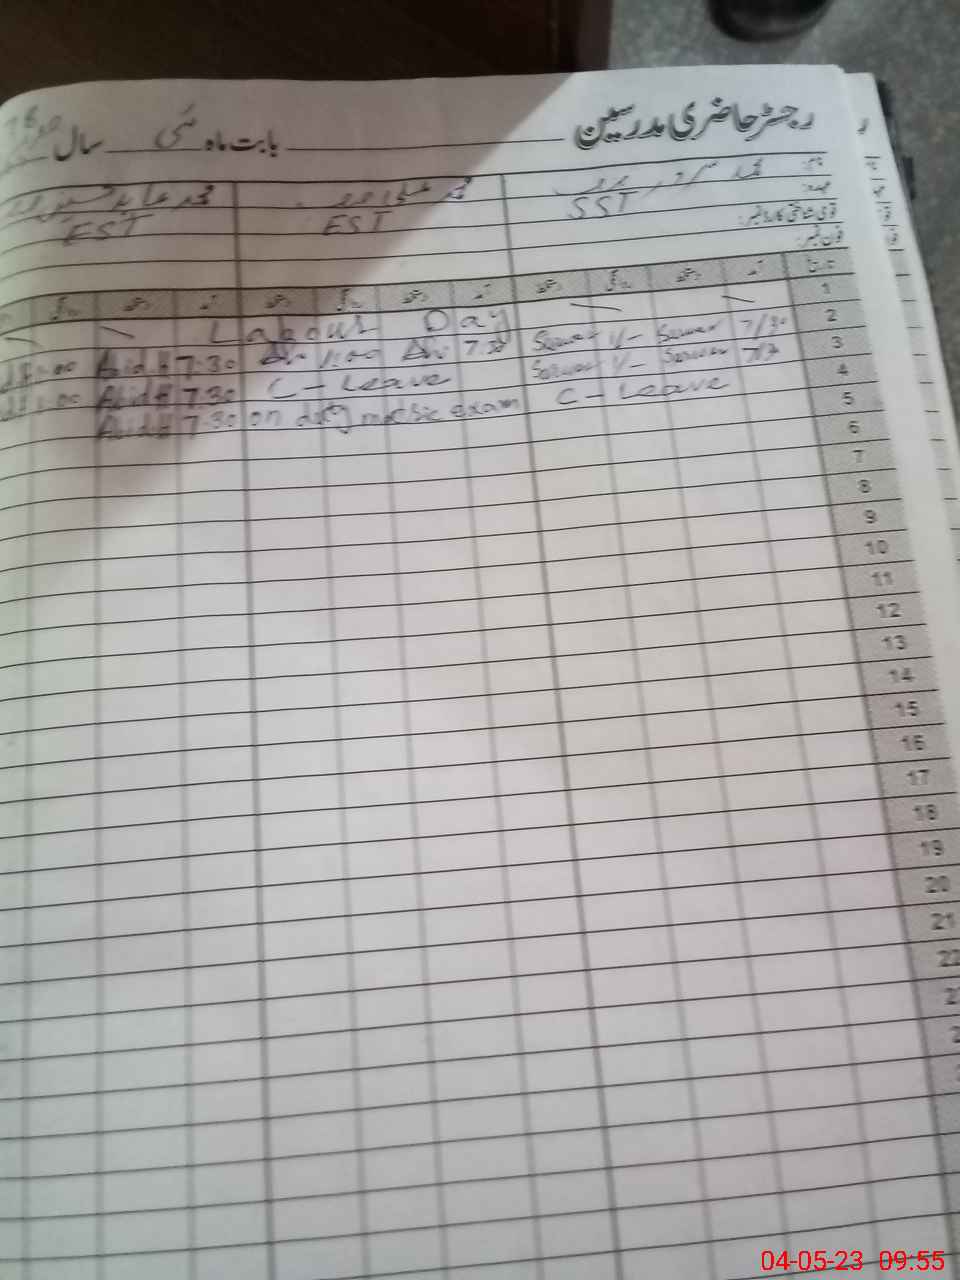 رجسٹر حاضری مدرسین بابت ماہ مئی سال
نام: محمد سرور محمد علی محمد عابد حسین
عہدہ: SST EST EST
قومی شناختی کارڈ نمبر:
فون نمبر:
تاریخ آمد دستخط روانگی دستخط آمد دستخط روانگی دستخط آمد دستخط روانگی
1 Labour Day
2 7/30 Sarwar 1/- Sarwar 7:30 Ali 1:00 Ali 7:30 Abid H 1:00
3 Sarwar 1/- Sarwar C - Leave 7:30 Abid H 1:00
4 C - Leave on duty matric exam 7:30 Abid H
5
6
7
8
9
10
11
12
13
14
15
16
17
18
19
20
21
22
04-05-23 09:55